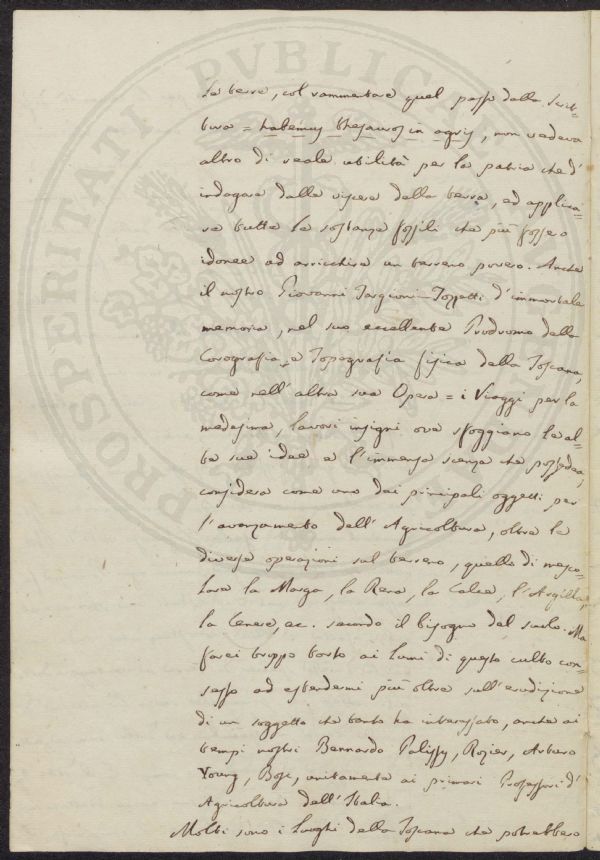 la terra, col rammentare quel passo della Scrit-
tura = habemus thesauros in agris, non vedeva
altro di reale utilità per la patria che d'
indagare dalle viscere della terra, ed applica-
re tutte le sostanze fossili che più fossero
idonee ad arricchire un terreno povero. Anche
il nostro Giovanni Targioni-Tozzetti d'immortale
memoria, nel suo eccellente Prodromo della
Corografia e Topografia fisica della Toscana,
come nell'altra sua Opera = i Viaggi per la
medesima, lavori insigni ove sfoggiano le al-
te sue idee e l'immensa scenza che possedea,
considera come uno dei principali oggetti per
l'avanzamento dell'Agricoltura, oltre le
diverse operazioni sul terreno, quello di mesco-
lare la Marga, la Rena, la Calce, l'Argilla,
la Cenere, ec. secondo il bisogno del suolo. Ma
farei troppo torto ai lumi di questo culto con-
sesso ad estendermi più oltre sull'erudizione
di un soggetto che tanto ha interessato, anche ai
tempi nostri Bernardo Palissy, Rozier, Arturo
Young, Bosc, unitamente ai primari Professori d'
Agricoltura dell'Italia.
Molti sono i luoghi della Toscana che potrebbero
PROSPERITATI PVBLICAE